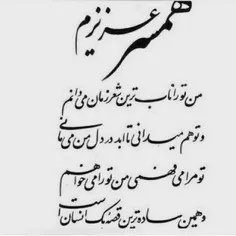 همسر عزیزم
من تو را ناب ترین شعر زمان می دانم
و تو هم میدانی تا ابد در دل من می مانی
تو مرا می فهمی من تو را می خواهم
و همین ساده ترین قصه یک انسان است